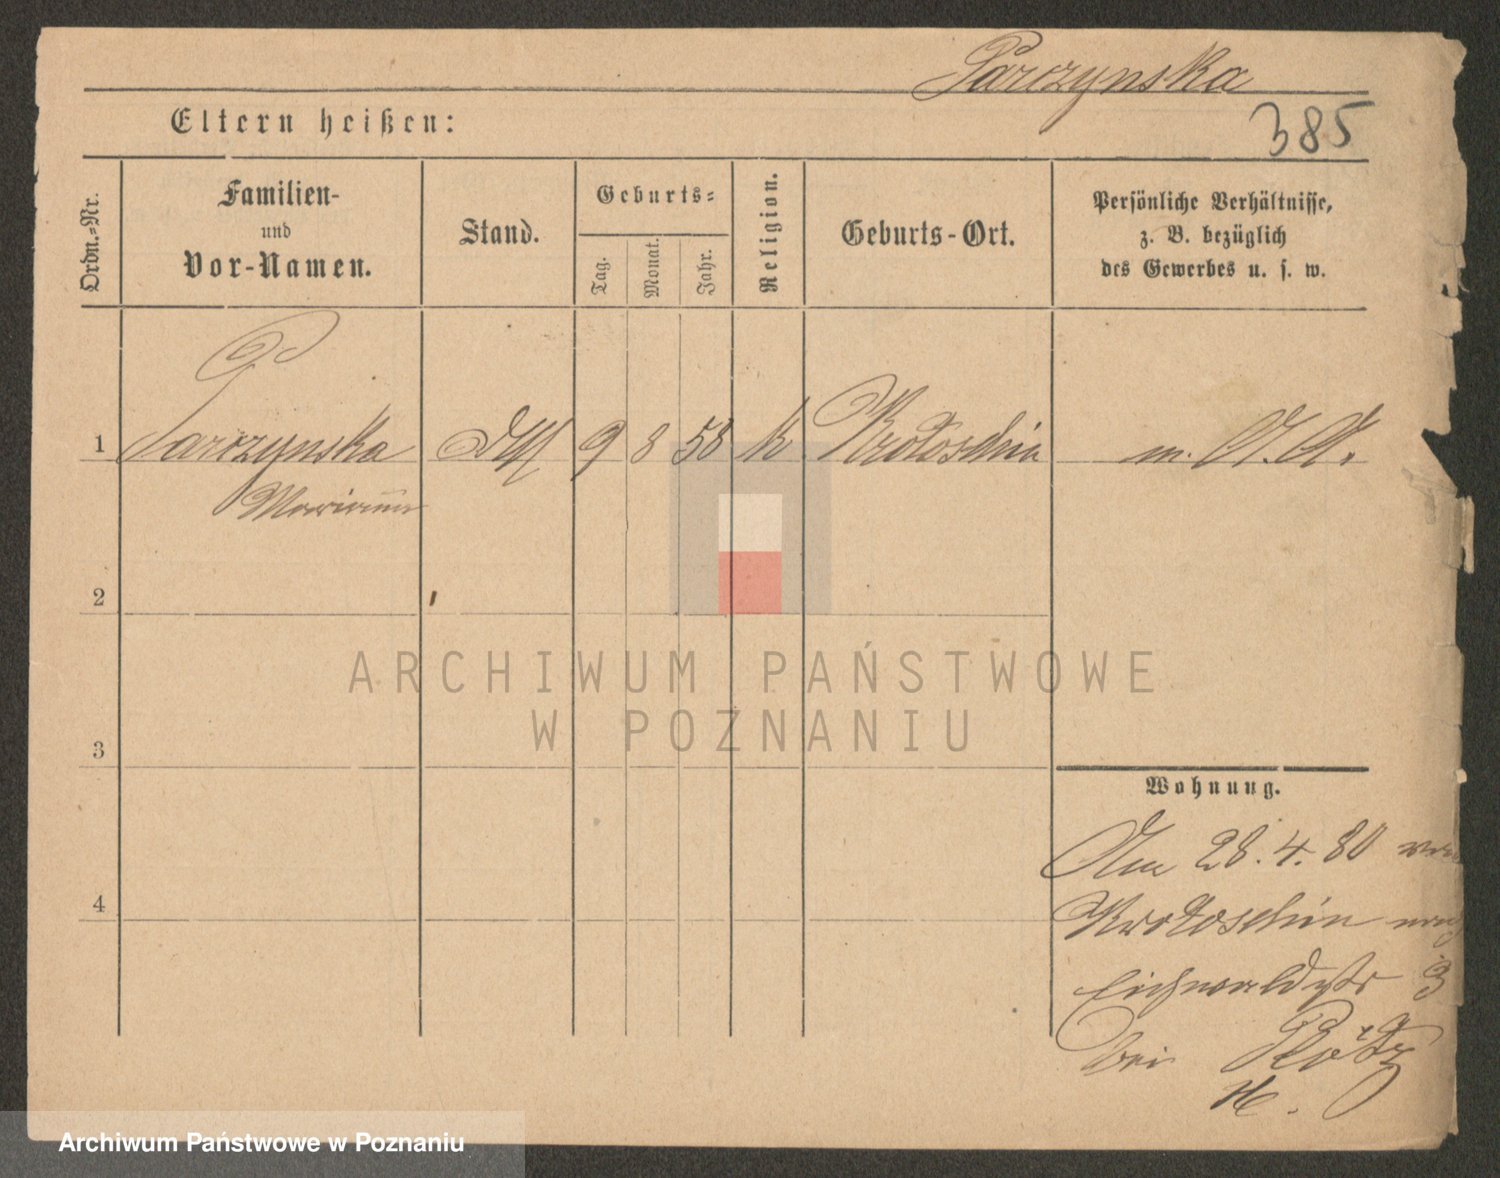 Parczynska
385
Eltern heißen:
Ordn.-Nr.
Familien-
und
Vor-Namen.
Stand.
Geburts-
Tag.
Monat.
Jahr.
Religion.
Geburts-Ort.
Persönliche Verhältnisse,
z. B. bezüglich
des Gewerbes u. s. w.
1 Parczynska 9 8 58 k Krotoschin m. A. A.
Marianna
2
3
4
ARCHIWUM PAŃSTWOWE
W POZNANIU
Wohnung.
Am 28. 4. 80 von
Krotoschin nach
Eichwaldstr 3
bei
H.
Archiwum Państwowe w Poznaniu